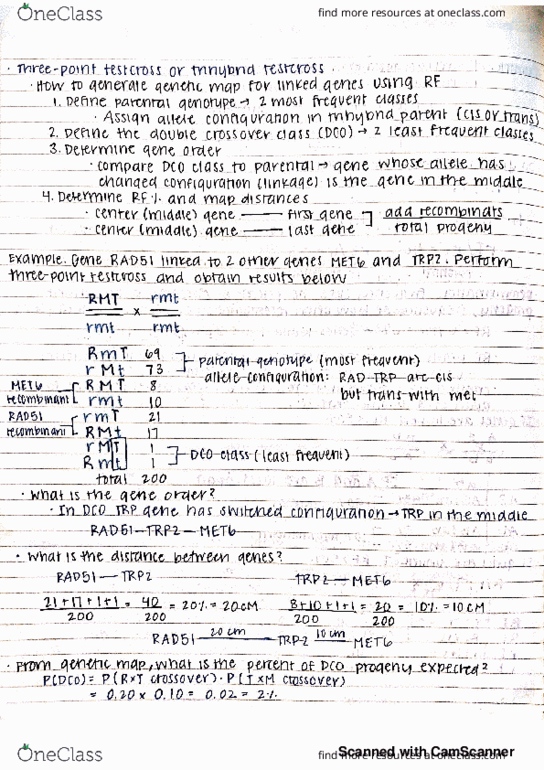 OneClass
find more resources at oneclass.com
· Three-point testcross or trihybrid testcross
· How to generate genetic map for linked genes using RF
1. Define parental genotype → 2 most frequent classes
· Assign allele configuration in trihybrid parent (cis or trans)
2. Define the double crossover class (DCO) → 2 least frequent classes
3. Determine gene order
· compare DCO class to parental → gene whose allele has
changed configuration (linkage) is the gene in the middle
4. Determine RF% and map distances
· center (middle) gene — first gene ] add recombinats
· center (middle) gene — last gene total progeny
Example. Gene RAD51 linked to 2 other genes MET6 and TRP2. Perform
three-point testcross and obtain results below
RMT x rmt
rmt rmt
RmT 69 ] parental genotype (most frequent)
rMt 73 allele configuration: RAD TRP are cis
MET6 [ RMT 8 but trans with met
recombinant rmt 10
RAD51 [ rmT 21
recombinant RMt 17
rMT 1 ] DCO class (least frequent)
Rmt 1
total 200
· What is the gene order?
· In DCO TRP gene has switched configuration → TRP in the middle
RAD51-TRP2-MET6
· What is the distance between genes?
RAD51 — TRP2 TRP2 — MET6
21+17+1+1 = 40 = 20% = 20cM 8+10+1+1 = 20 = 10% = 10cM
200 200 200 200
RAD51 20 cm TRP2 10 cm MET6
· From genetic map, what is the percent of DCO progeny expected?
P(DCO) = P(R×T crossover) · P(T×M crossover)
= 0.20 x 0.10 = 0.02 = 2%
OneClass
find more resources at oneclass.com
Scanned with CamScanner